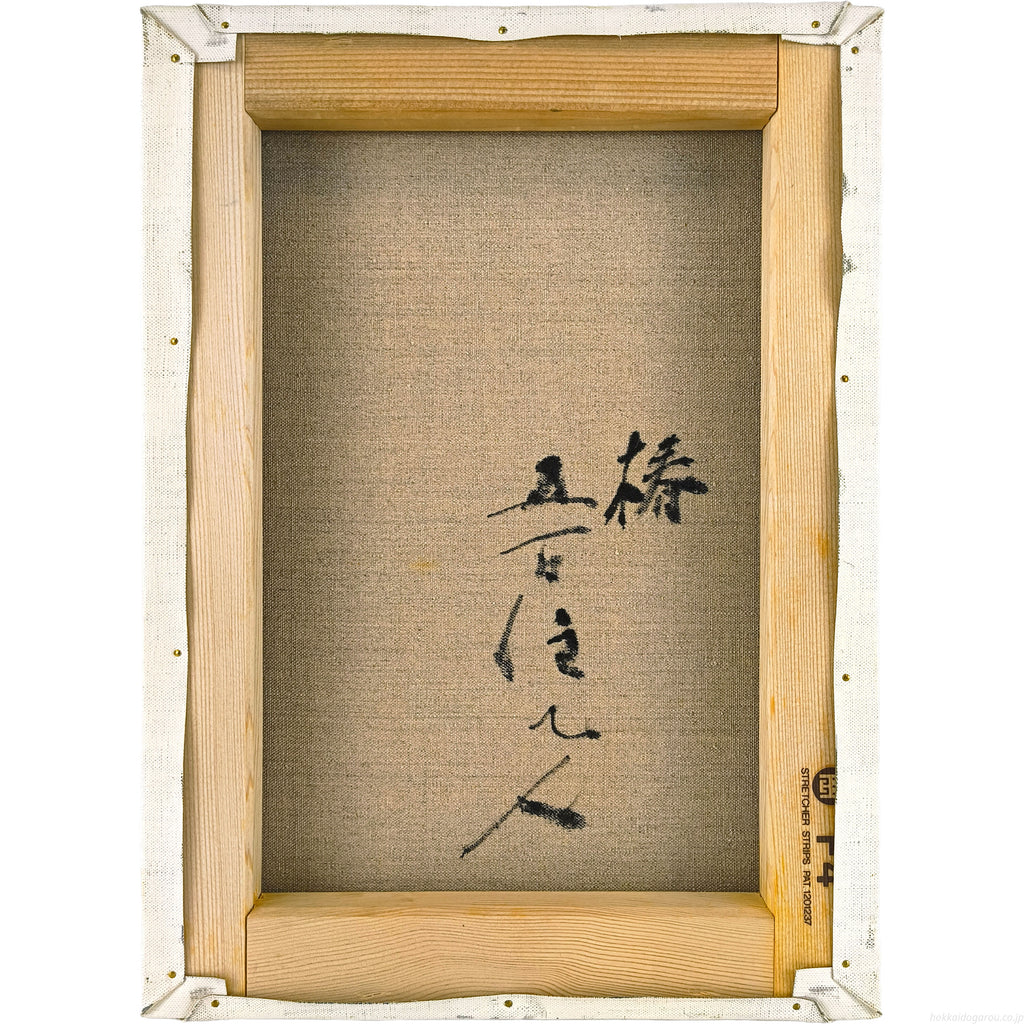 椿
五百住乙人
F4
STRETCHER STRIPS PAT.1201237
hokkaidogarou.co.jp